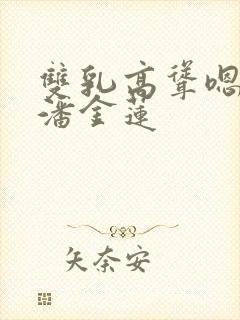 雙乳高聳嗯
潘金蓮
矢奈安